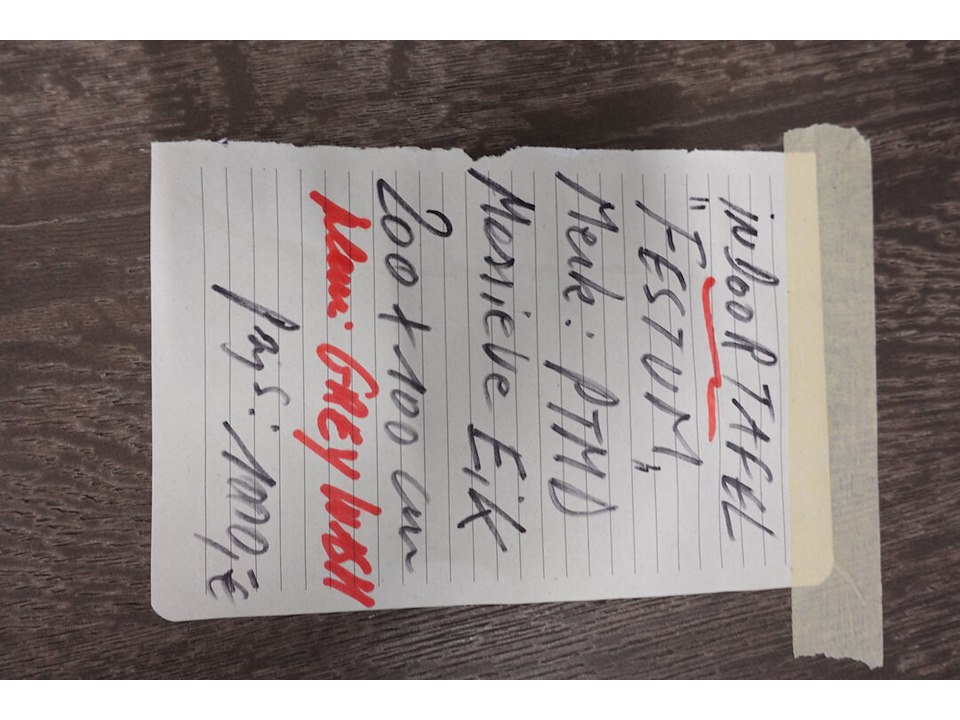 INDOOR TAFEL
"FESTUM"
Merk: PTMD
Massieve EiK
200 x 100 cm
GREY WASH
Prijs: